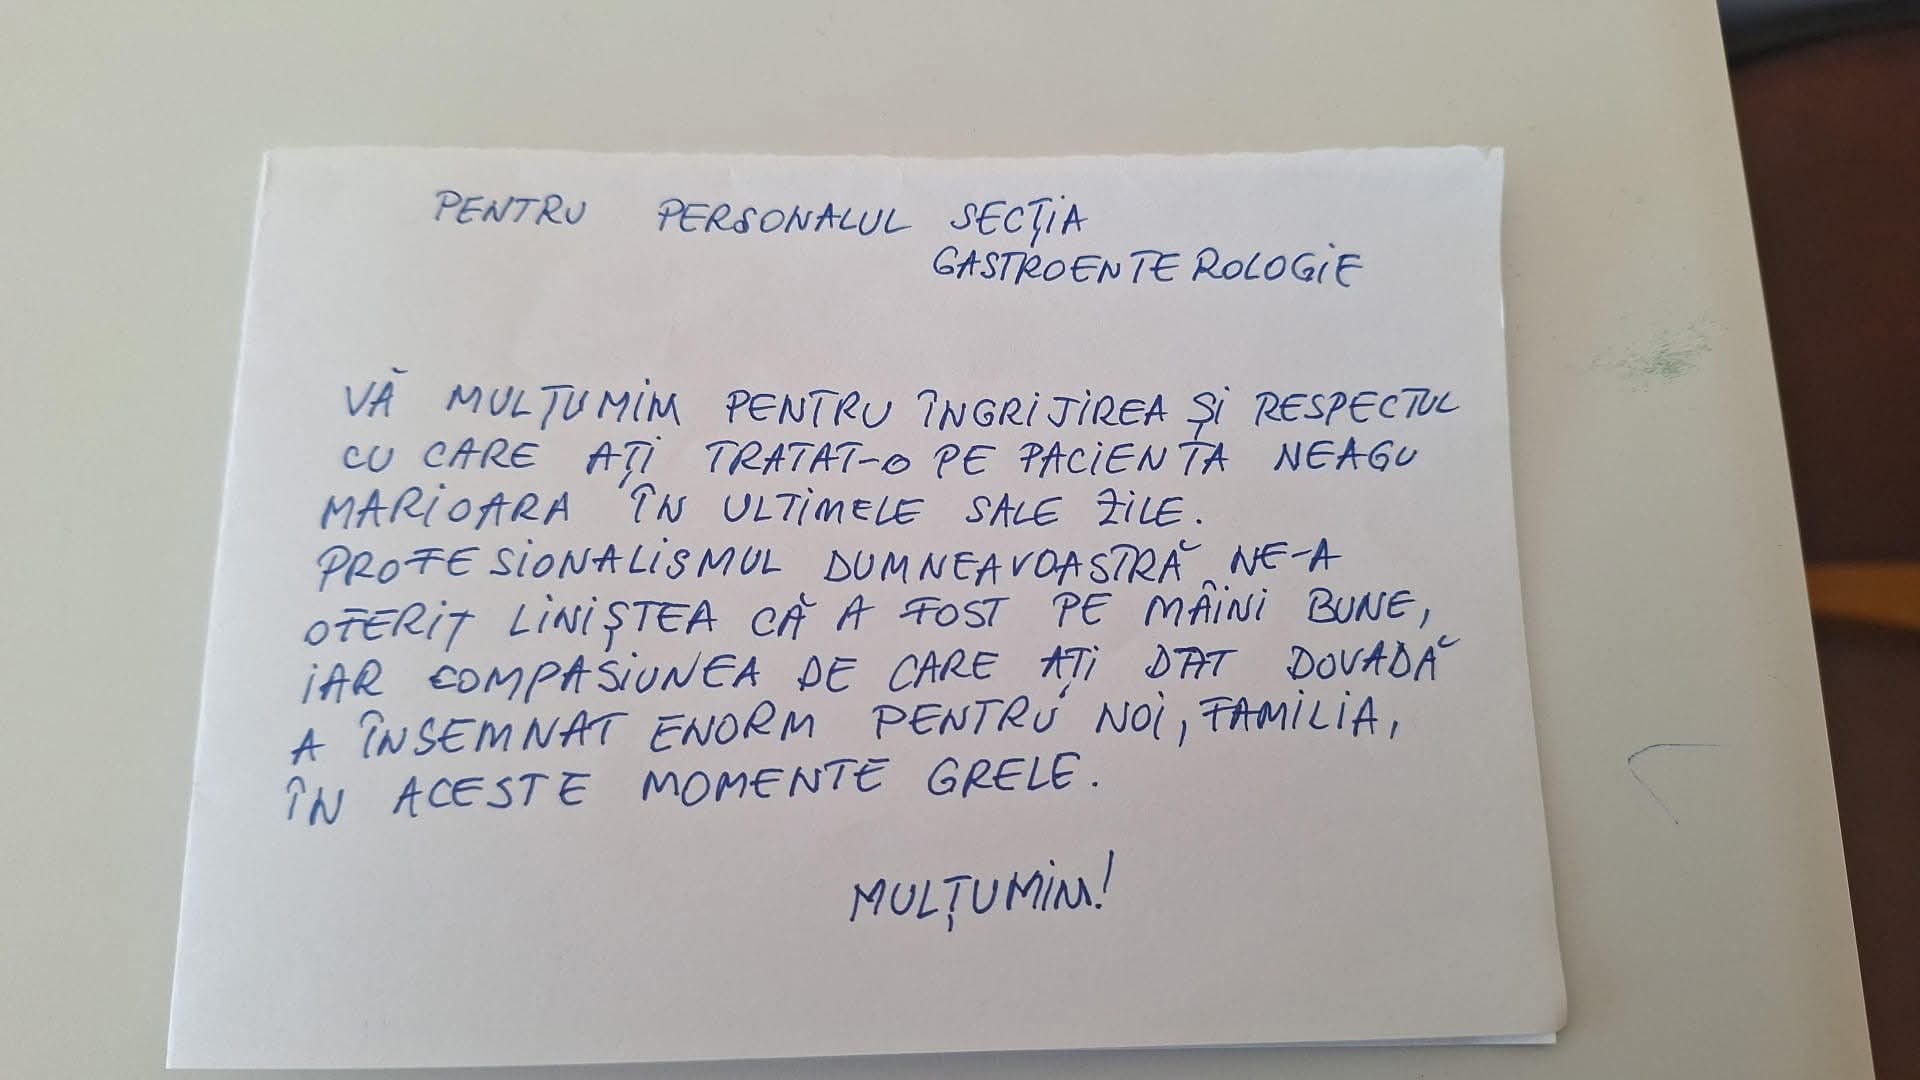 PENTRU PERSONALUL SECȚIA
GASTROENTEROLOGIE
VĂ MULȚUMIM PENTRU ÎNGRIJIREA ȘI RESPECTUL
CU CARE AȚI TRATAT-O PE PACIENTA NEAGU
MARIOARA ÎN ULTIMELE SALE ZILE.
PROFESIONALISMUL DUMNEAVOASTRĂ NE-A
OFERIT LINIȘTEA CĂ A FOST PE MÂINI BUNE,
IAR COMPASIUNEA DE CARE AȚI DAT DOVADĂ
A ÎNSEMNAT ENORM PENTRU NOI, FAMILIA,
ÎN ACESTE MOMENTE GRELE.
MULȚUMIM!